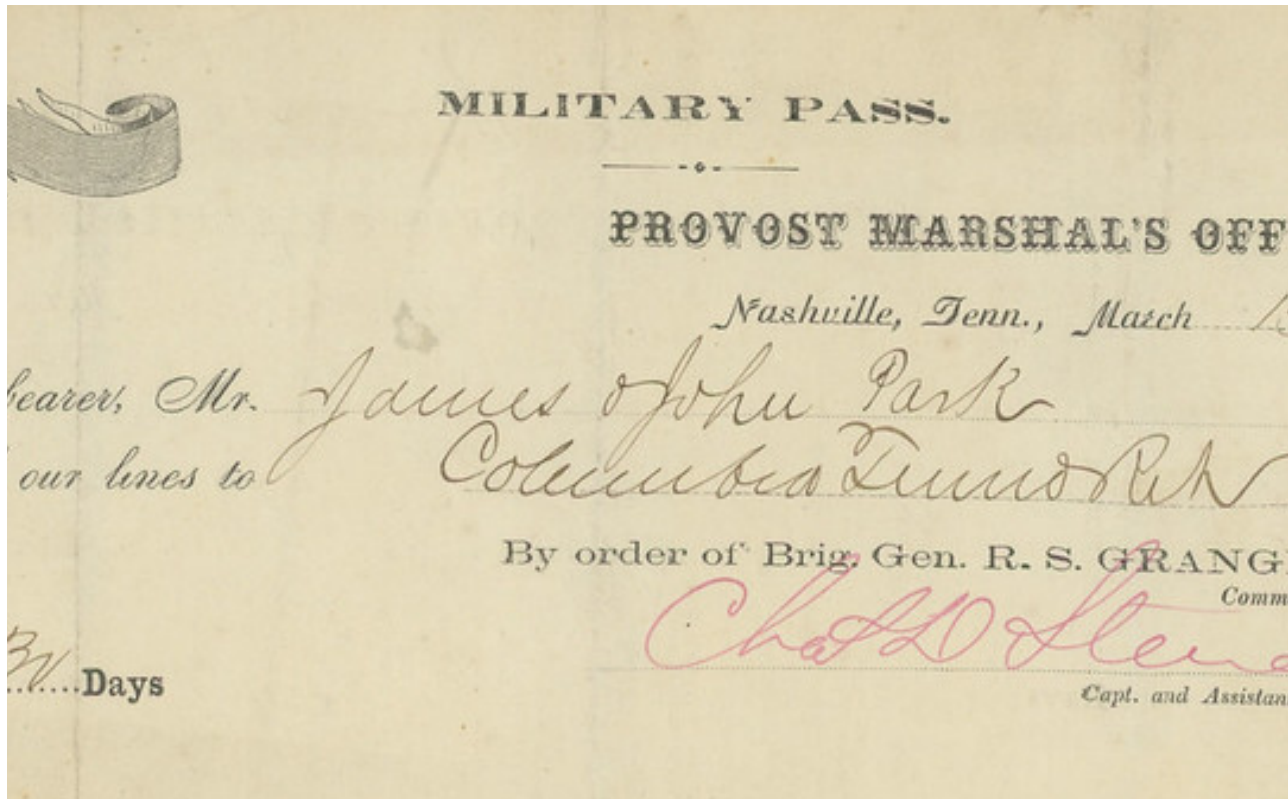 MILITARY PASS.
PROVOST MARSHAL'S OFF
Nashville, Tenn., March
bearer, Mr. James & John Park
our lines to Columbia Tenn & Retn
By order of Brig. Gen. R. S. GRANG
Comm
Chas D
30 Days
Capt. and Assistan